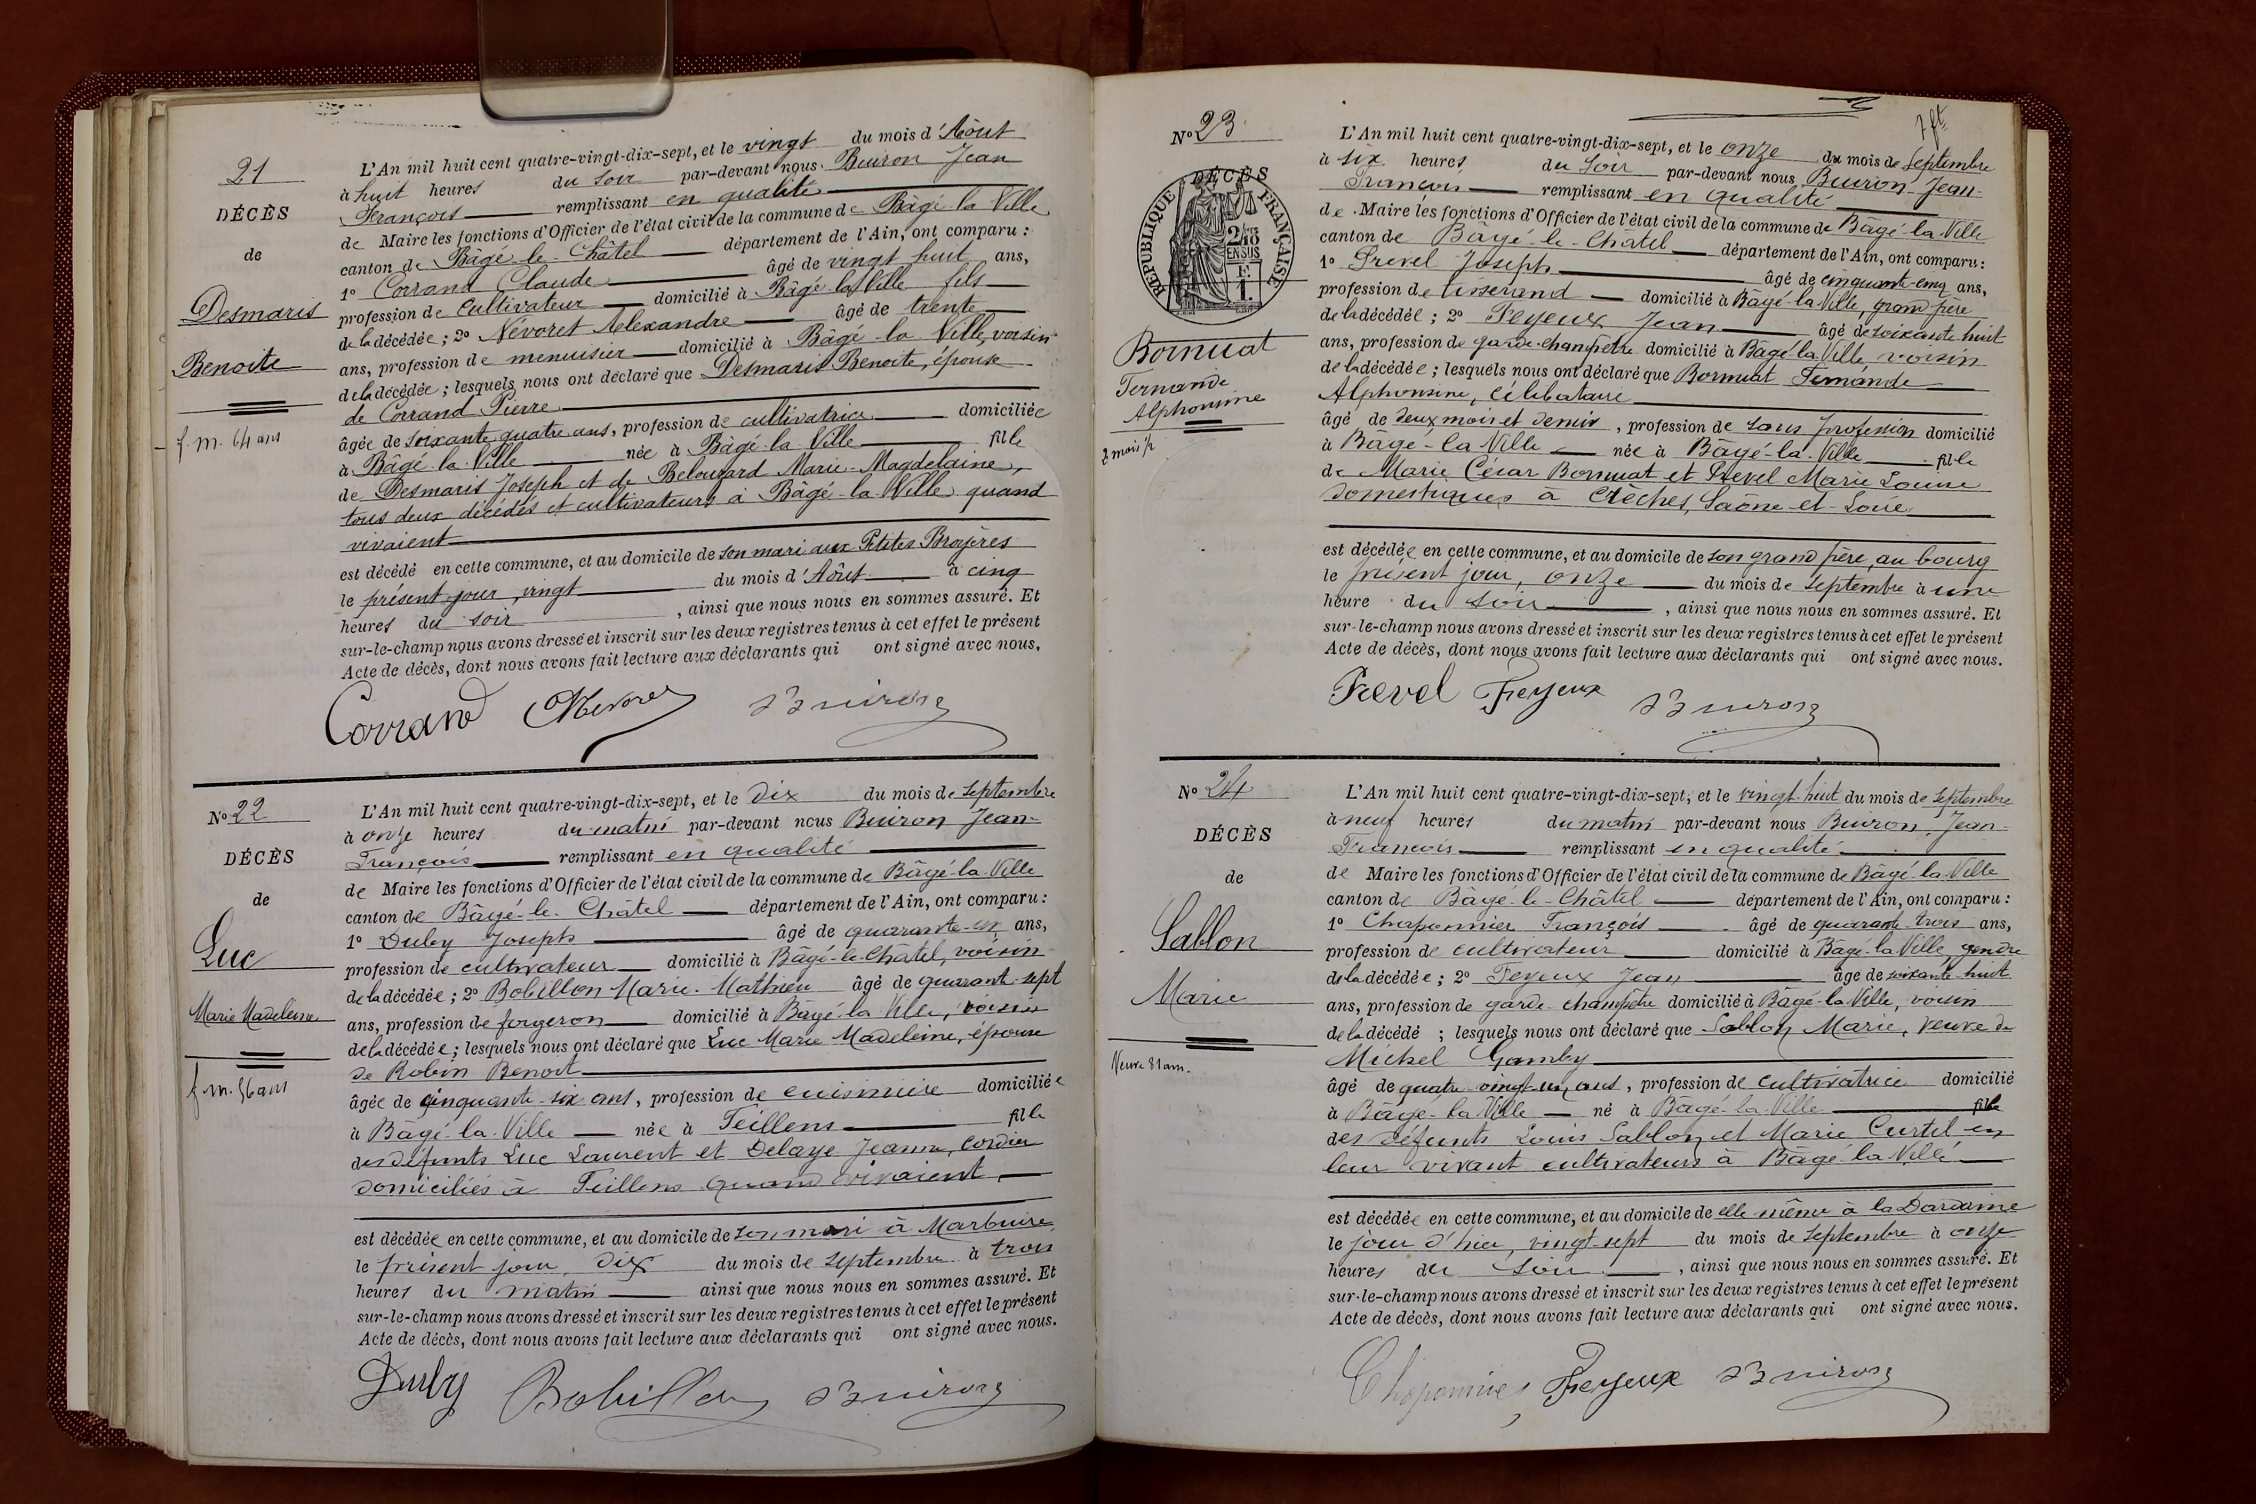 21
DÉCÈS
de
Desmaris
Benoite
f. m. 64 ans
L'An mil huit cent quatre-vingt-dix-sept, et le vingt du mois d'Aôut
à huit heures du soir par-devant nous Buiron Jean
François remplissant en qualité
de Maire les fonctions d'Officier de l'état civil de la commune de Bâgé la Ville
canton de Bâgé-le-Châtel département de l'Ain, ont comparu :
1º Corrand Claude âgé de vingt huit ans,
profession de cultivateur domicilié à Bâgé-la-Ville fils
de la décédée ; 2º Névoret Alexandre âgé de trente
ans, profession de menuisier domicilié à Bâgé-la Ville, voisin
de la décédée ; lesquels nous ont déclaré que Desmaris Benoite, épouse
de Corrand Pierre
âgée de soixante quatre ans, profession de cultivatrice domiciliée
à Bâgé-la-Ville née à Bâgé-la-Ville fille
de Desmaris Joseph et de Belouzard Marie-Magdelaine,
tous deux décédés et cultivateurs à Bâgé-la-Ville quand
vivaient
est décédé en cette commune, et au domicile de son mari aux Petites Broyères
le présent jour, vingt du mois d'Aôut à cinq
heures du soir , ainsi que nous nous en sommes assuré. Et
sur-le-champ nous avons dressé et inscrit sur les deux registres tenus à cet effet le présent
Acte de décès, dont nous avons fait lecture aux déclarants qui ont signé avec nous.
Corrand Buiron
Nº 22
DÉCÈS
de
Luc
Marie Madeleine
f. m. 56 ans
L'An mil huit cent quatre-vingt-dix-sept, et le dix du mois de septembre
à onze heures du matin par-devant nous Buiron Jean-
François remplissant en qualité
de Maire les fonctions d'Officier de l'état civil de la commune de Bâgé-la-Ville
canton de Bâgé-le-Châtel département de l'Ain, ont comparu :
1º Duby Joseph âgé de quarante-un ans,
profession de cultivateur domicilié à Bâgé-le-Châtel, voisin
de la décédée ; 2º Bobillon Marie-Mathieu âgé de quarante-sept
ans, profession de forgeron domicilié à Bâgé-la Ville, voisin
de la décédée ; lesquels nous ont déclaré que Luc Marie Madeleine, épouse
de Robin Benoit
âgée de cinquante-six ans, profession de cuisinière domiciliée
à Bâgé-la-Ville née à Feillens fille
des défunts Luc Laurent et Delaye Jeanne, cordier
domiciliés à Feillens quand vivaient
est décédée en cette commune, et au domicile de son mari à Marbuire
le présent jour, dix du mois de septembre à trois
heures du matin ainsi que nous nous en sommes assuré. Et
sur-le-champ nous avons dressé et inscrit sur les deux registres tenus à cet effet le présent
Acte de décès, dont nous avons fait lecture aux déclarants qui ont signé avec nous.
Duby Bobillon Buiron
Nº 23
DÉCÈS
RÉPUBLIQUE FRANÇAISE
Bornuat
Fernande
Alphonsine
2 mois ½
L'An mil huit cent quatre-vingt-dix-sept, et le onze du mois de septembre
à six heures du soir par-devant nous Buiron Jean-
François remplissant en qualité
de Maire les fonctions d'Officier de l'état civil de la commune de Bâgé-la-Ville
canton de Bâgé-le-Châtel département de l'Ain, ont comparu :
1º Prevel Joseph âgé de cinquante-cinq ans,
profession de tisserand domicilié à Bâgé-la-Ville, grand père
de la décédée ; 2º Feyeux Jean âgé de soixante huit
ans, profession de garde-champêtre domicilié à Bâgé-la-Ville, voisin
de la décédée ; lesquels nous ont déclaré que Bornuat Fernande
Alphonsine, célibataire
âgé de deux mois et demis , profession de sans profession domicilié
à Bâgé-la-Ville née à Bâgé-la-Ville fille
de Marie César Bornuat et Prevel Marie Louise
domestiques à Crèches, Saône-et-Loire
est décédée en cette commune, et au domicile de son grand père, au bourg
le présent jour, onze du mois de septembre à une
heure du soir , ainsi que nous nous en sommes assuré. Et
sur-le-champ nous avons dressé et inscrit sur les deux registres tenus à cet effet le présent
Acte de décès, dont nous avons fait lecture aux déclarants qui ont signé avec nous.
Prevel Feyeux Buiron
Nº 24
DÉCÈS
de
Sablon
Marie
Veuve 81 ans.
L'An mil huit cent quatre-vingt-dix-sept, et le vingt-huit du mois de septembre
à neuf heures du matin par-devant nous Buiron, Jean-
François remplissant en qualité
de Maire les fonctions d'Officier de l'état civil de la commune de Bâgé-la-Ville
canton de Bâgé-le-Châtel département de l'Ain, ont comparu :
1º Chaponnier François âgé de quarante-trois ans,
profession de cultivateur domicilié à Bâgé-la-Ville, gendre
de la décédée ; 2º Feyeux Jean âgé de soixante-huit
ans, profession de garde-champêtre domicilié à Bâgé-la-Ville, voisin
de la décédé ; lesquels nous ont déclaré que Sablon Marie, veuve de
Michel Gamby
âgé de quatre-vingt-un ans, profession de cultivatrice domicilié
à Bâgé-la-Ville né à Bâgé-la-Ville fille
des défunts Louis Sablon et Marie Curtil en
leur vivant cultivateurs à Bâgé-la Ville
est décédée en cette commune, et au domicile de elle-même à la Dardaine
le jour d'hier, vingt-sept du mois de septembre à onze
heures du soir , ainsi que nous nous en sommes assuré. Et
sur-le-champ nous avons dressé et inscrit sur les deux registres tenus à cet effet le présent
Acte de décès, dont nous avons fait lecture aux déclarants qui ont signé avec nous.
Chaponnier Feyeux Buiron